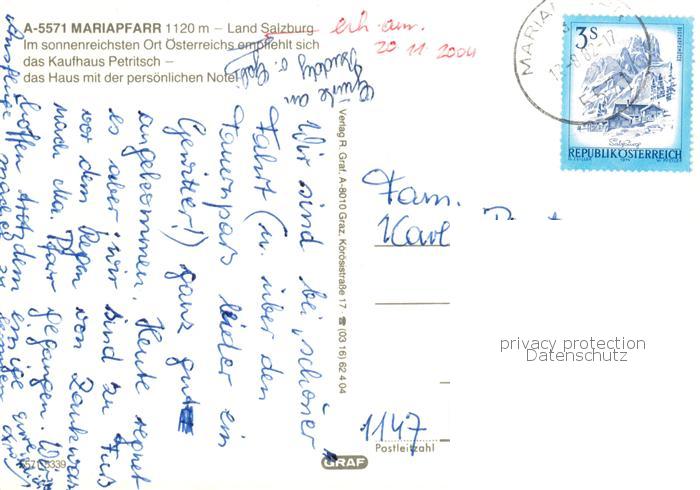 A-5571 MARIAPFARR 1120 m – Land Salzburg
Im sonnenreichsten Ort Österreichs empfiehlt sich
das Kaufhaus Petritsch –
das Haus mit der persönlichen Note!
erh. am.
20 11 2004
MARIA
3 S
Salzburg
REPUBLIK ÖSTERREICH
Verlag R. Graf, A-8010 Graz, Körösistraße 17 ☎ (03 16) 62 4 04
Wir sind bei schöner
Fahrt (u. über den
Tauernpaß leider ein
Gewitter!) ganz gut
angekommen. Heute regnet
es aber, wir sind zu Fuß
vor dem Regen von
nach Ma. Pfarr gegangen. Wir
hoffen trotzdem einige
Ausflüge machen zu können
Fam.
Karl
1147
Postleitzahl
GRAF
privacy protection
Datenschutz